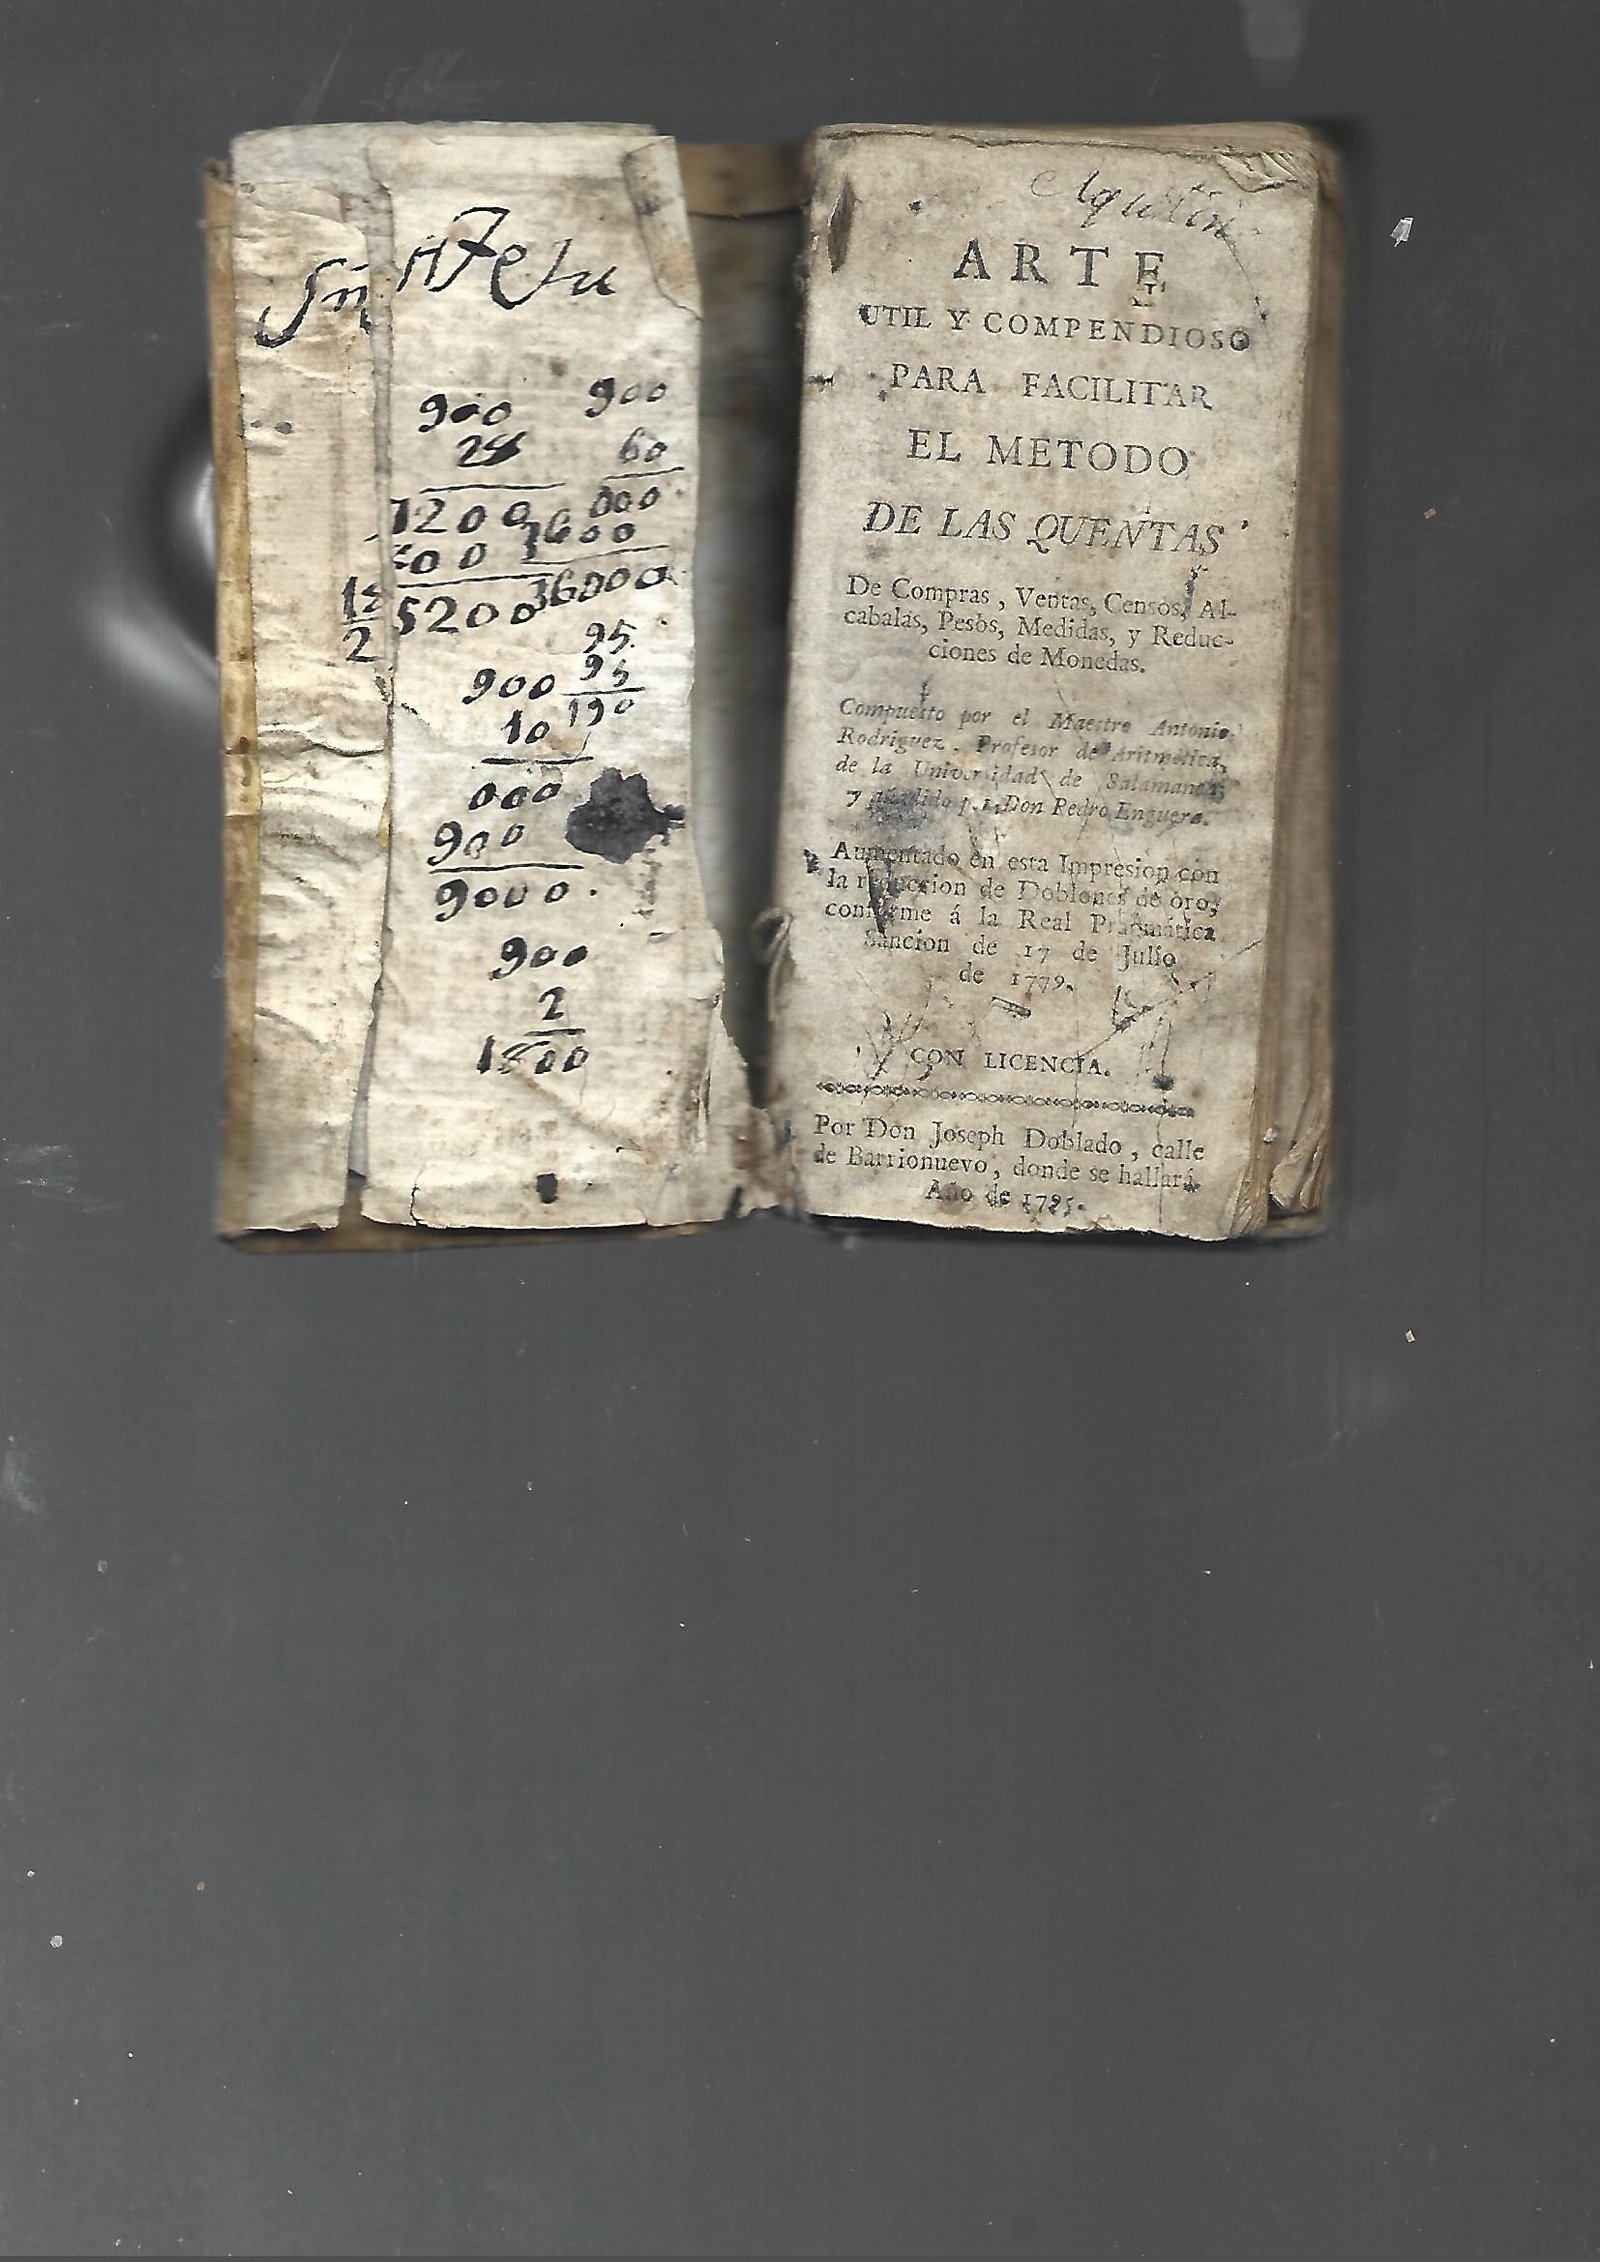 900
28
7200
18 00
2 5200
900
60
000
36000
95
95
190
900
10
000
900
9000.
900
2
1800
Agustin
ARTE
UTIL Y COMPENDIOSO
PARA FACILITAR
EL METODO
DE LAS QUENTAS
De Compras, Ventas, Censos, Al-
cabalas, Pesos, Medidas, y Reduc-
ciones de Monedas.
Compuesto por el Maestro Antonio
Rodriguez, Profesor de Aritmetica,
de la Universidad de Salamanca,
y añadido por Don Pedro Enguera.
Aumentado en esta Impresion con
la reduccion de Doblones de oro,
conforme á la Real Pragmática
Sancion de 17 de Julio
de 1779.
CON LICENCIA.
Por Don Joseph Doblado, calle
de Barrionuevo, donde se hallará.
Año de